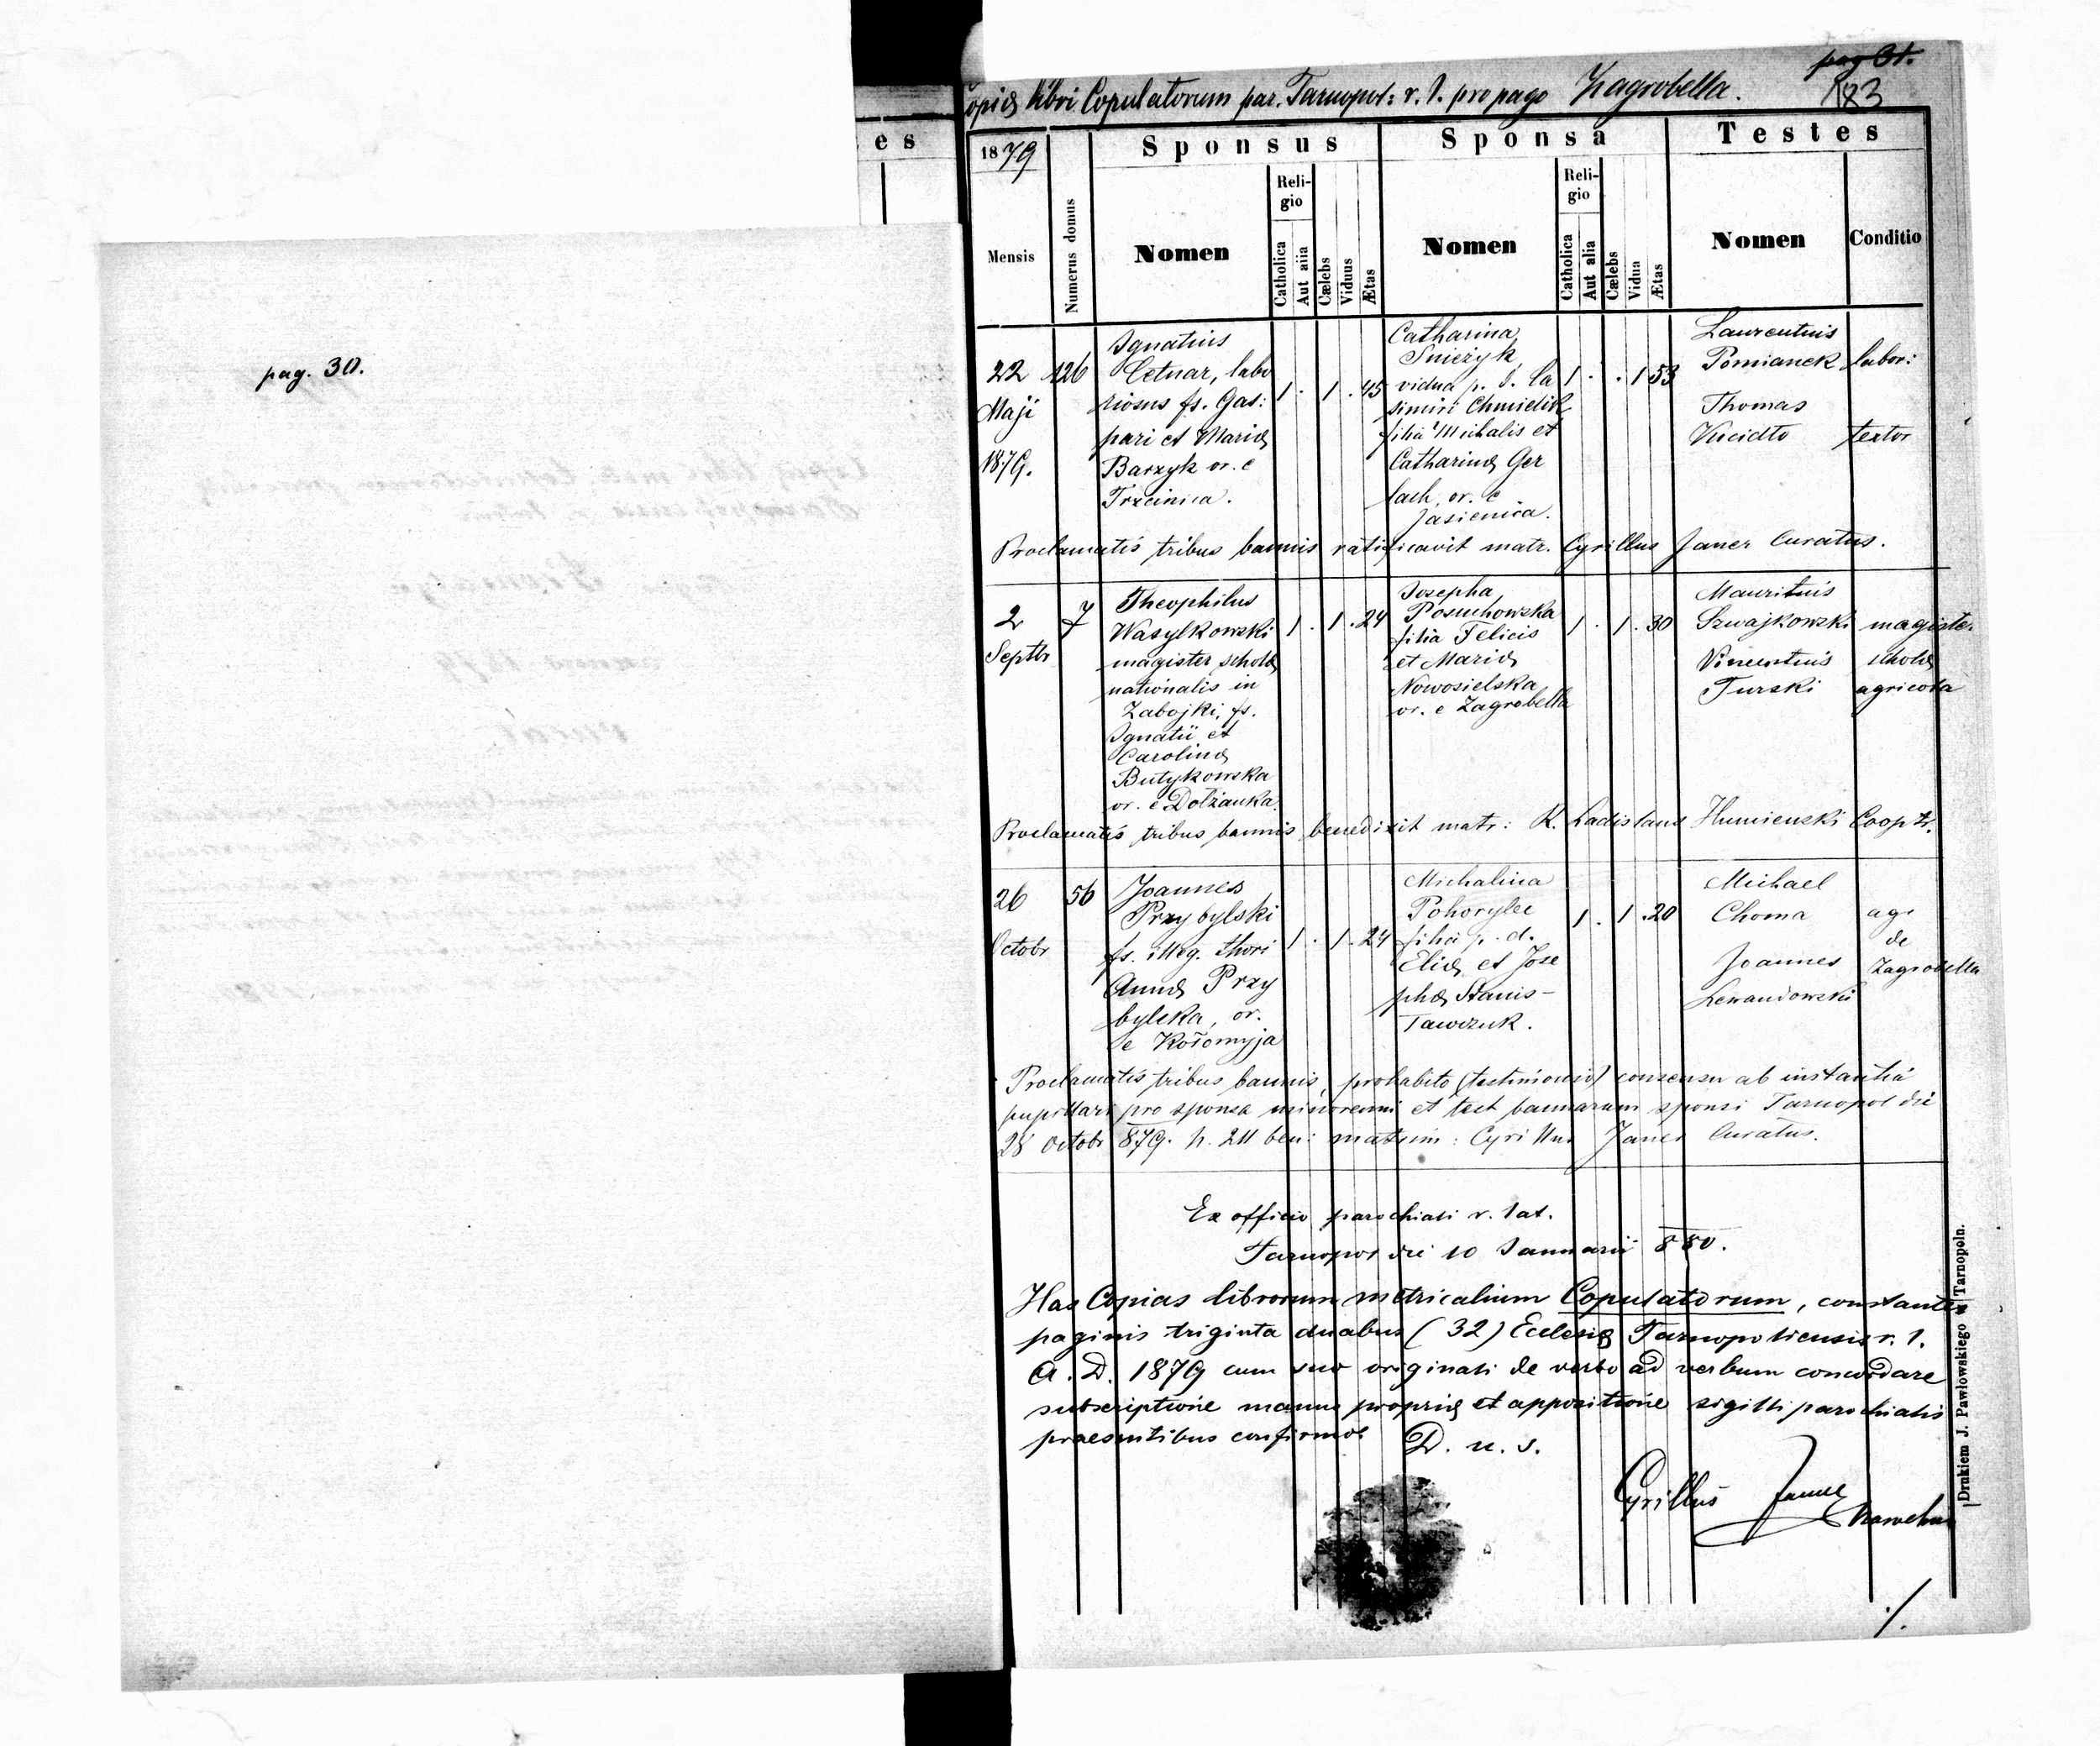 pag. 30.
es
pag 31.
Copia libri Copulatorum par. Tarnopol: r. l. pro pago Zagrobella.
183
1879
Sponsus
Sponsa
Testes
Mensis
Numerus domus
Nomen
Religio
Catholica
Aut alia
Cælebs
Viduus
Ætas
Nomen
Religio
Catholica
Aut alia
Cælebs
Vidua
Ætas
Nomen
Conditio
22
Maji
1879.
126
Ignatius
Cetnar, labo
riosus fs. Gas:
pari et Mariæ
Barzyk or. e
Trzcinica.
1 . 1 . 45
Catharina
Śnieżyk
vidua p. d. Ca
simiri Chmielik
filia Michalis et
Catharinæ Ger
lach, or. e
Jasienica.
1 . . 1 53
Laurentius
Pomianek labor:
Thomas
textor
Proclamatis tribus bannis ratificavit matr. Cyrillus Janer Curatus.
2
Septbr
7
Theophilus
Wasylkowski
magister scholæ
nationalis in
Zabojki, fs.
Ignatii et
Carolinæ
Butykowska
or. e Dolżanka.
1 . 1 . 24
Josepha
Posuchowska
filia Felicis
et Mariæ
Nowosielska
or. e Zagrobella
1 . 1 . 30
Mauritius
Szwajkowski magister
Vincentius scholæ
Turski agricola
Proclamatis tribus bannis benedixit matr: K. Ladislaus Humienski Cooptr.
26
Octobr
56
Joannes
Przybylski
fs. illeg. thori
Annæ Przy
bylska, or.
e Kołomyja
1 . 1 . 24
Michalina
Pohorylec
filia p. d.
Eliæ et Jose
phæ Stanis-
ławczuk.
1 . 1 . 20
Michael
Choma agr
de
Joannes Zagrobella
Lewandowski
Proclamatis tribus bannis, prohabito (testimonio) consensu ab instantia
pupillari pro sponsa minorenni et test bannarum sponsi Tarnopol die
28 Octobr 879. n. 211 ben: matrim: Cyrillus Janer Curatus.
Ex officio parochiali r. lat.
Tarnopol die 10 Januarii 880.
Has Copias librorum metricalium Copulatorum, constantes
paginis triginta duabus (32) Ecclesiæ Tarnopoliensis r. l.
A. D. 1879 cum suo originali de verbo ad verbum concordare
subscriptione manus propriæ et appositione sigilli parochialis
praesentibus confirmo.
D. u. s.
Cyrillus Janer
Drukiem J. Pawłowskiego w Tarnopoln.
./.